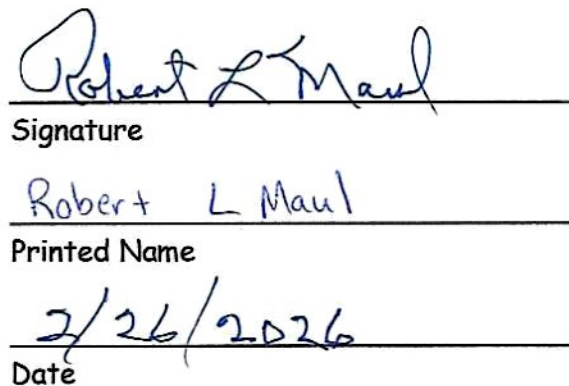 Robert L Maul
Signature
Robert L Maul
Printed Name
2/26/2026
Date